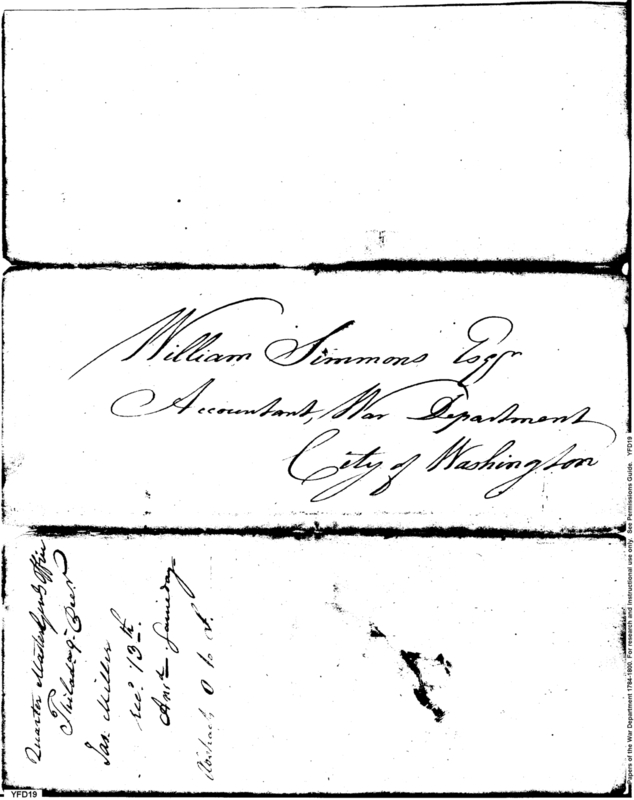 William Simmons Esqr
Accountant, War Department
City of Washington
Quarter Master Genls Office
Philada 9
Jas. Miller
rec. 13th
Ansd same day
O to S.
Papers of the War Department 1784-1800. For research and instructional use only. See Permissions Guide. YFD19
YFD19